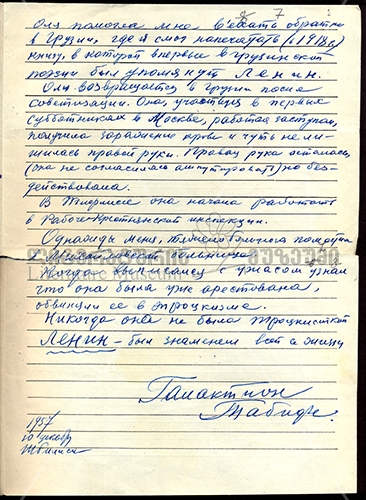 7
Оля помогла мне, въехать обратно
в Грузию, где я смог напечатать (в 1918 г.)
книгу, в которой впервые в грузинской
поэзии был упомянут Ленин.
Оля возвращается в Грузию после
советизации. Она, участвуя в первых
субботниках в Москве, работая заступом,
получила заражение крови и чуть не ли-
шилась правой руки. Правая рука осталась,
(она не согласилась ампутировать) но без-
действовала.
В Тбилиси она начала работать
в Рабоче-Крестьянской инспекции.
Однажды меня, тяжело больного
больницу
Когда я выписался с ужасом узнал
что она была уже арестована,
обвинили ее в троцкизме.
Никогда она не была троцкисткой
Ленин – был знаменем всей её жизни
Галактион
Табидзе.
1957
10
Тбилиси
ლიტერატურის მუზეუმი
Literature Museum